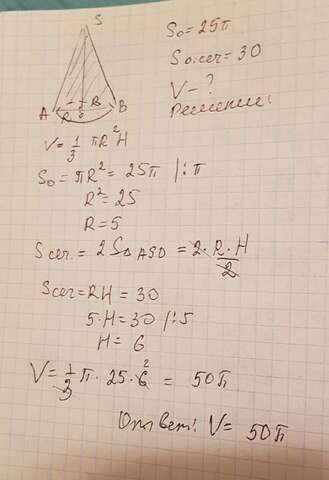 S
A R R B
о
S₀ = 25π
S о.сеч = 30
V - ?
Решение:
V = 1/3 πR²H
S₀ = πR² = 25π |:π
R² = 25
R = 5
S сеч = 2S△ASO = 2·R·H/2
S сеч = RH = 30
5·H = 30 |:5
H = 6
V = 1/3 π · 25 · 6² = 50π
Ответ: V = 50π